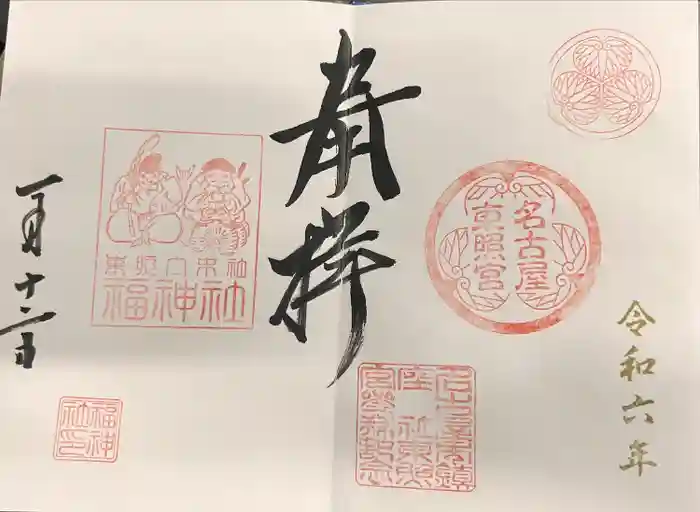 令和六年
名古屋
東照宮
奉拝
東照宮末社
福神社
一月十二日
福神
社印